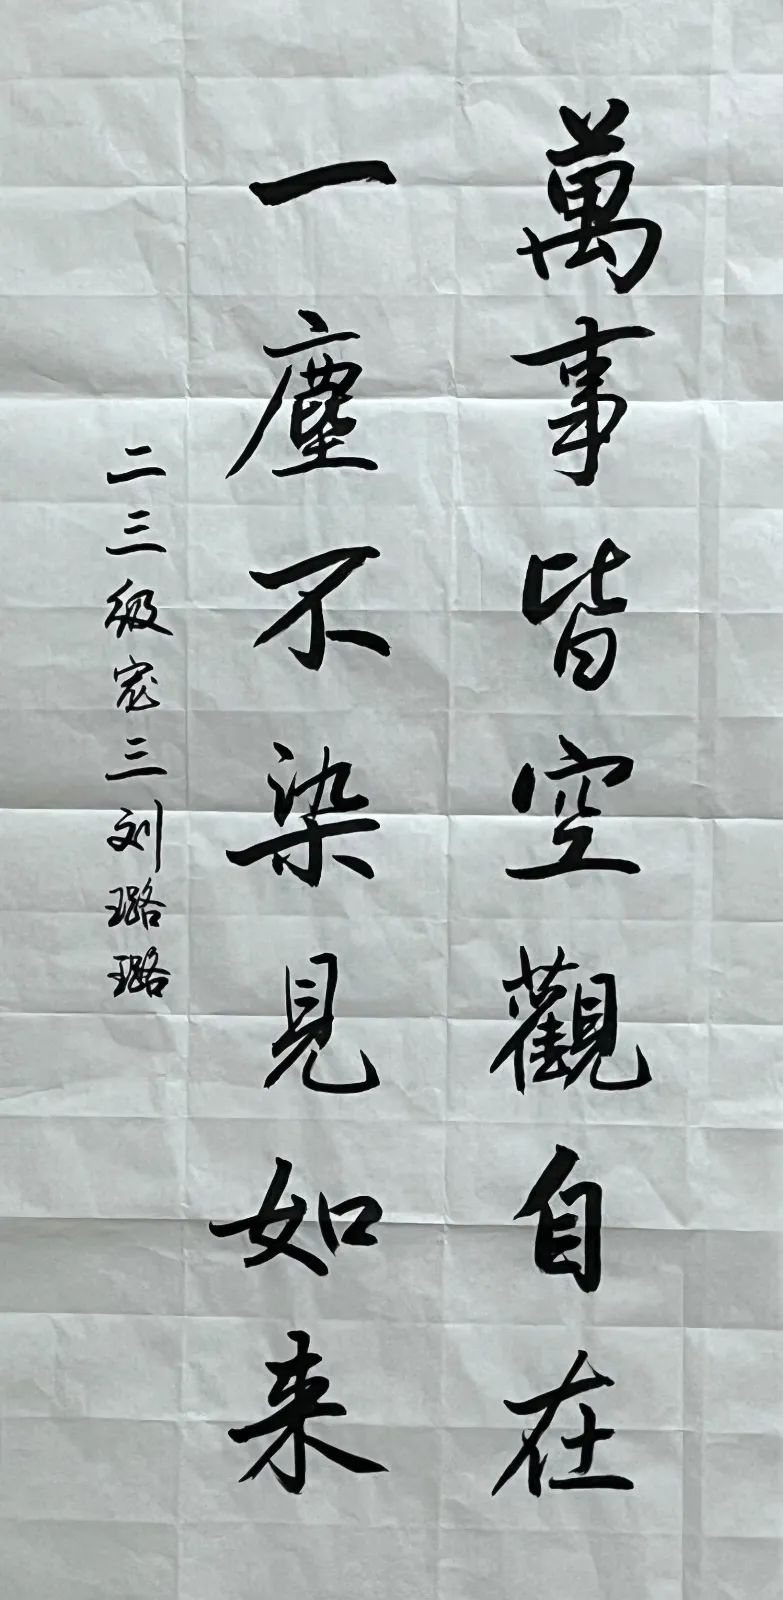 萬事皆空觀自在
一塵不染見如来
二三级宠三刘璐璐